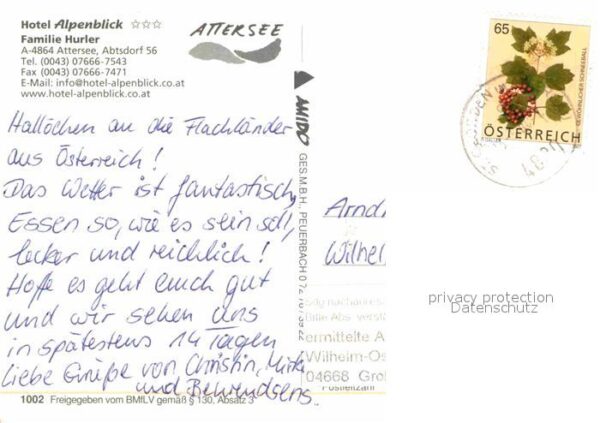 Hotel Alpenblick ☆☆☆
Familie Hurler
A-4864 Attersee, Abtsdorf 56
Tel. (0043) 07666-7543
Fax (0043) 07666-7471
E-Mail: info@hotel-alpenblick.co.at
www.hotel-alpenblick.co.at
ATTERSEE
Hallöchen an die Flachländer
aus Österreich!
Das Wetter ist fantastisch,
Essen so, wie es sein soll,
lecker und reichlich!
Hoffe es geht euch gut
und wir sehen uns
in spätestens 14 Tagen
Liebe Grüße von Christin,
und Behrendsens
1002 Freigegeben vom BMfLV gemäß § 130, Absatz 3
AMIDO
GES.M.B.H., PEUERBACH
65
GEWÖHNLICHER SCHNEEBALL
ÖSTERREICH
Arnd
Wilhel
privacy protection
Datenschutz
ermittelte A
Wilhelm-Os
04668 Gro
Postleitzahl